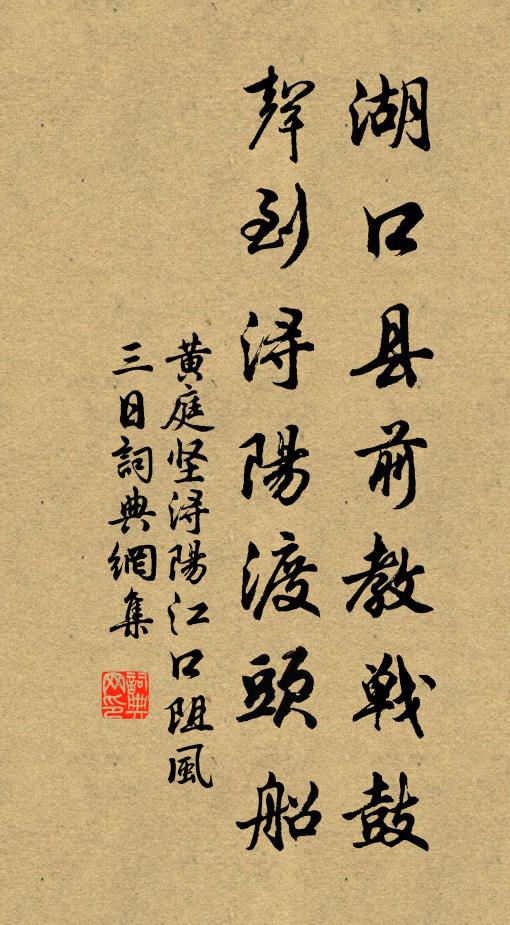 湖口县前教戦鼓
聲到浔陽渡頭船
黄庭坚浔陽江口阻風
三日詞典網集
詞典
网印